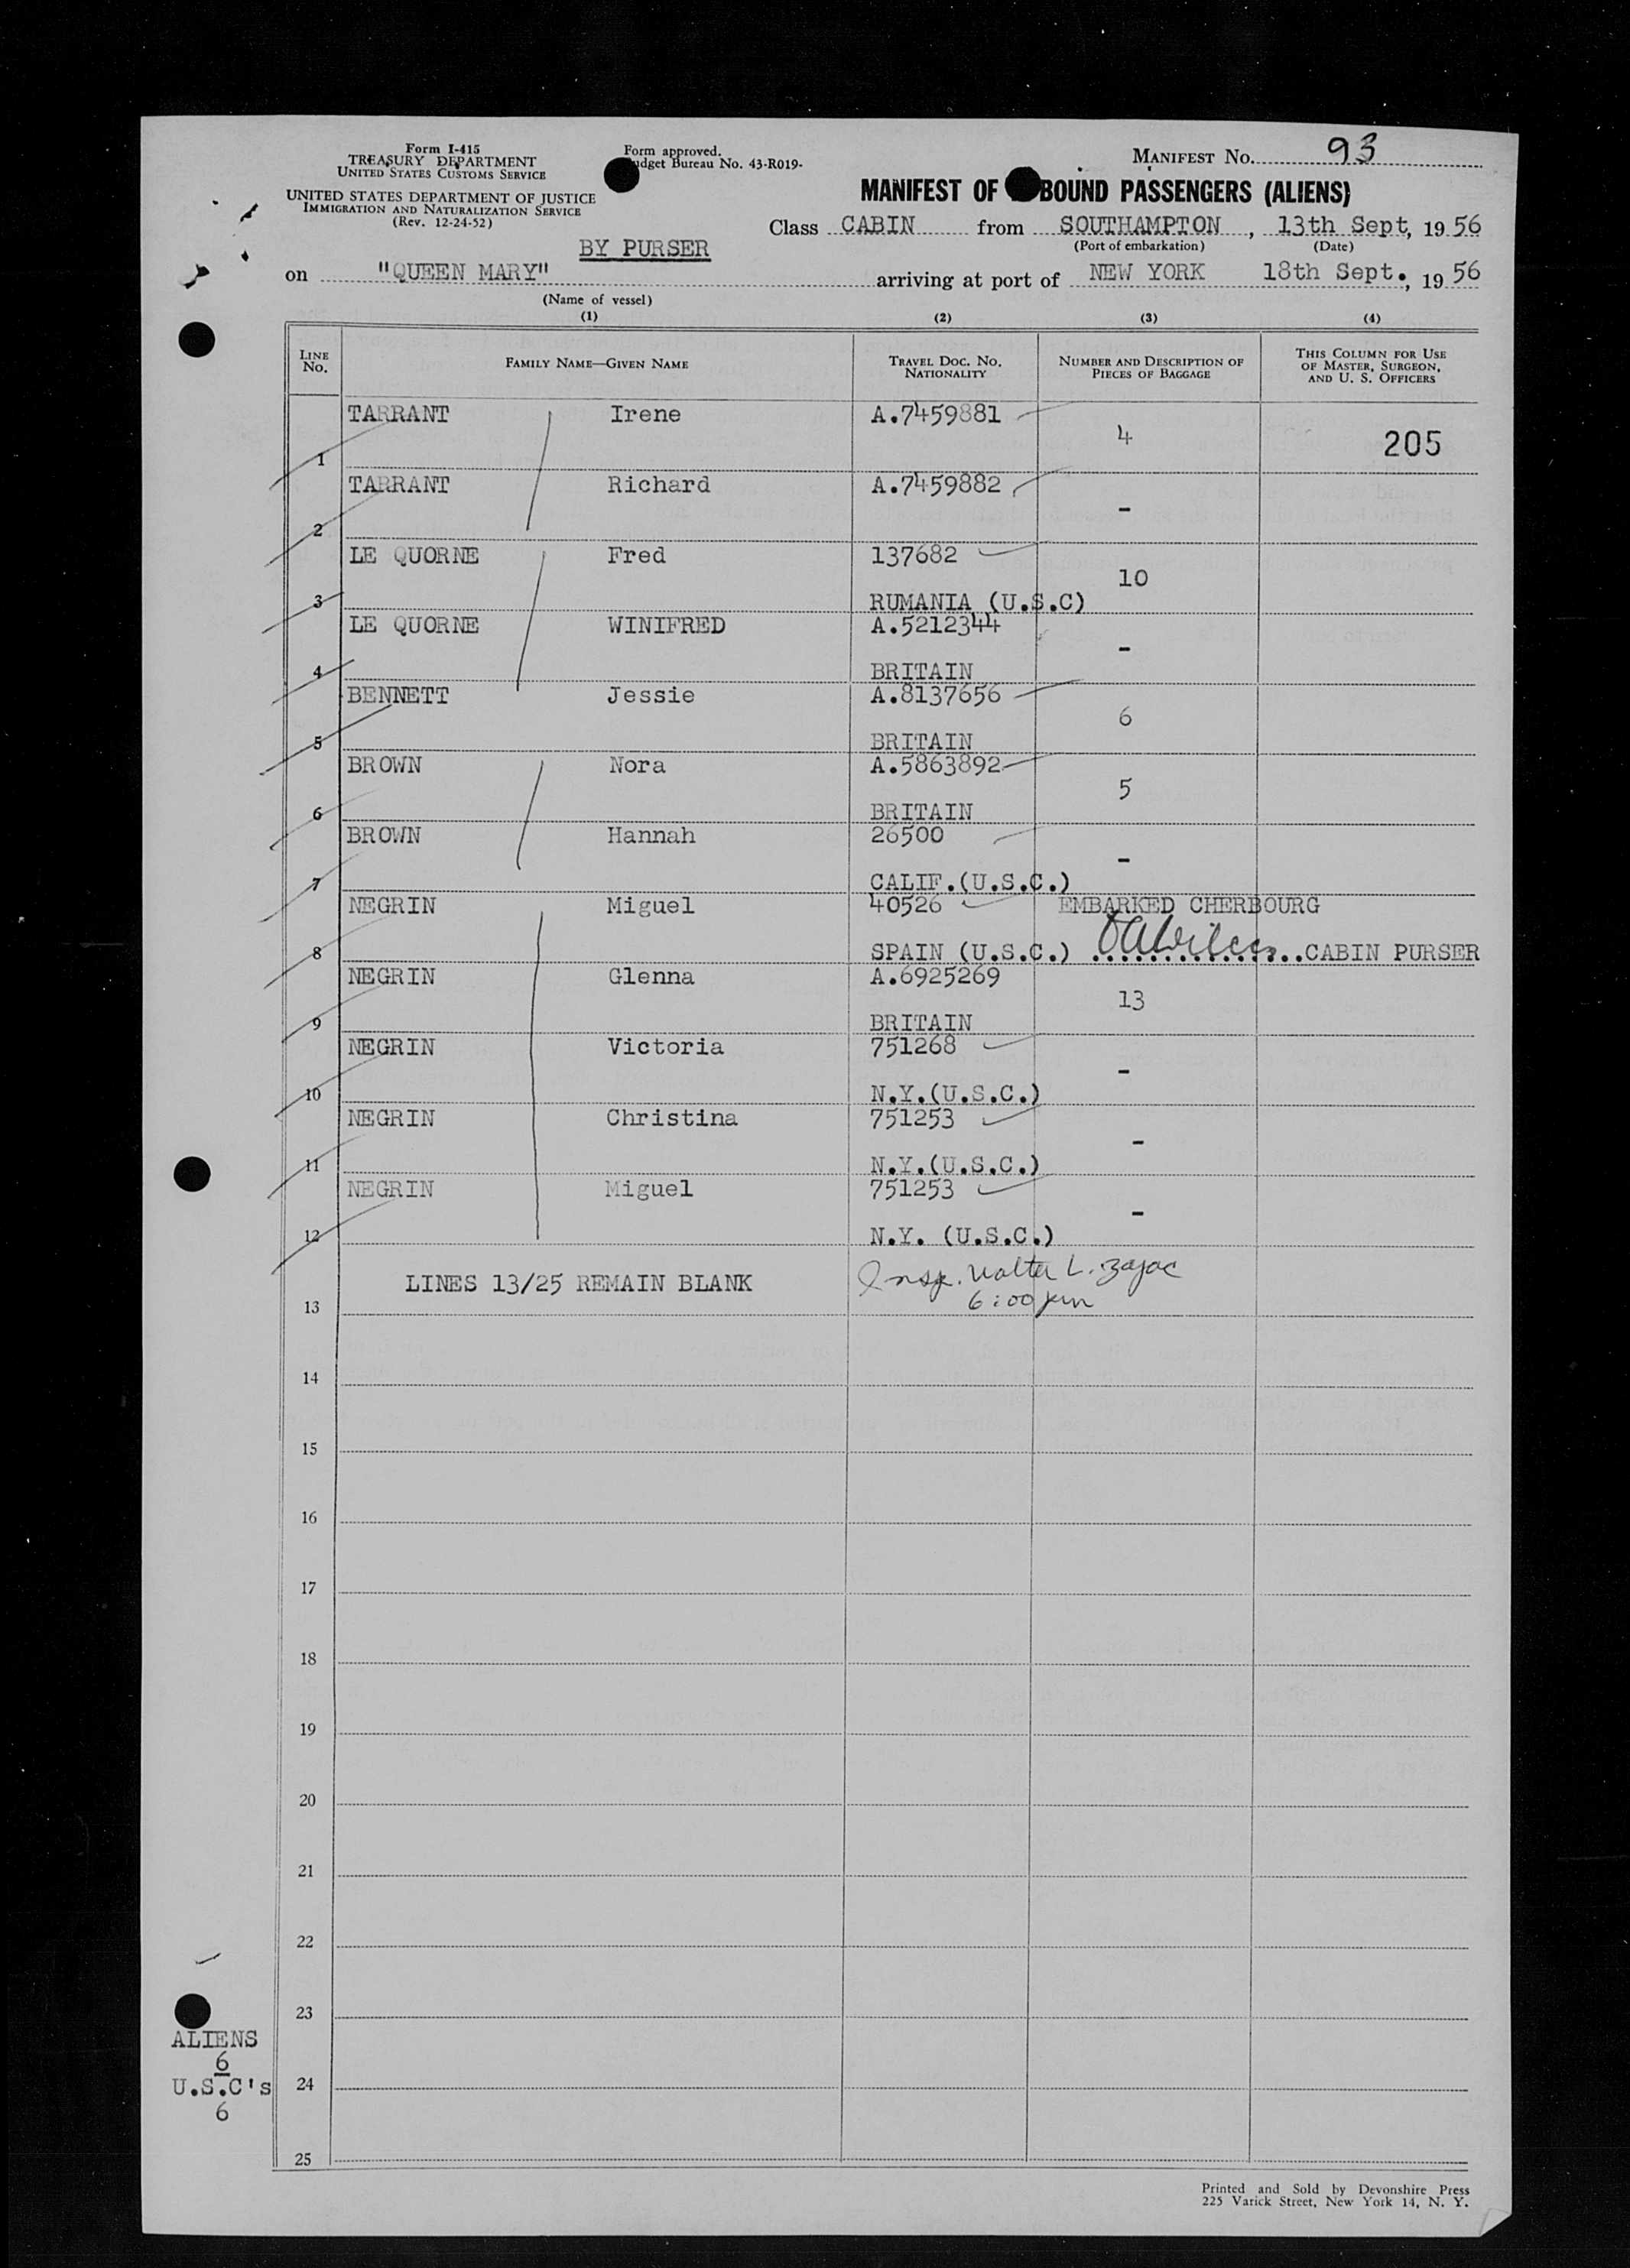 Form I-415
TREASURY DEPARTMENT
UNITED STATES CUSTOMS SERVICE
UNITED STATES DEPARTMENT OF JUSTICE
IMMIGRATION AND NATURALIZATION SERVICE
(Rev. 12-24-52)
Form approved.
udget Bureau No. 43-R019-
MANIFEST No. 93
MANIFEST OF BOUND PASSENGERS (ALIENS)
Class CABIN from SOUTHAMPTON, 13th Sept, 1956
(Port of embarkation) (Date)
BY PURSER
on "QUEEN MARY" arriving at port of NEW YORK 18th Sept., 1956
(Name of vessel)
(1) (2) (3) (4)
LINE No. FAMILY NAME—GIVEN NAME TRAVEL DOC. NO. NATIONALITY NUMBER AND DESCRIPTION OF PIECES OF BAGGAGE THIS COLUMN FOR USE OF MASTER, SURGEON, AND U. S. OFFICERS
TARRANT Irene A.7459881
1 4 205
TARRANT Richard A.7459882
2 -
LE QUORNE Fred 137682
10
3 RUMANIA (U.S.C)
LE QUORNE WINIFRED A.5212344
-
4 BRITAIN
BENNETT Jessie A.8137656
6
5 BRITAIN
BROWN Nora A.5863892
5
6 BRITAIN
BROWN Hannah 26500
-
7 CALIF.(U.S.C.)
NEGRIN Miguel 40526 EMBARKED CHERBOURG
8 SPAIN (U.S.C.) ...............CABIN PURSER
NEGRIN Glenna A.6925269
13
9 BRITAIN
NEGRIN Victoria 751268
-
10 N.Y.(U.S.C.)
NEGRIN Christina 751253
-
11 N.Y.(U.S.C.)
NEGRIN Miguel 751253
-
12 N.Y. (U.S.C.)
LINES 13/25 REMAIN BLANK Insp. Walter L. Zajac
6:00 pm
13
14
15
16
17
18
19
20
21
22
23
24
25
ALIENS
6
U.S.C's
6
Printed and Sold by Devonshire Press
225 Varick Street, New York 14, N. Y.